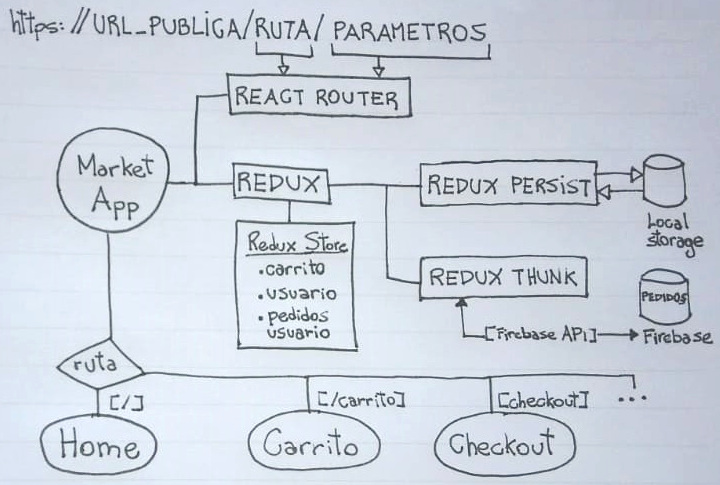 https://URL_PUBLICA/RUTA/ PARAMETROS
REACT ROUTER
Market
App
REDUX
REDUX PERSIST
Local
storage
Redux Store
.carrito
.usuario
.pedidos
usuario
REDUX THUNK
PEDIDOS
[Firebase API]
Firebase
ruta
[/]
[/carrito]
[checkout]
...
Home
Carrito
Checkout